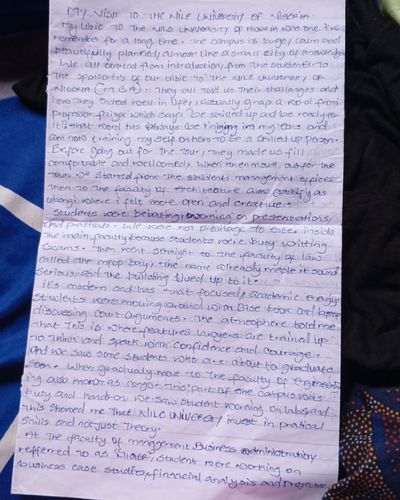 MY VISIT TO THE NILE UNIVERSITY OF NIGERIA
My visit to the Nile University of Nigeria was one I will
remember for a long time. The campus is large, calm and
beautifully planned, almost like a small city of knowledge
We all started from introduction, from the students to
the sponsors of our visit to the Nile University of
They all told us their challenges and
how they started in life, I actually a word from
professor which says "be skilled up and be ready for
it". That word has always be ringing in my ears and
am now training my self on how to be a skilled up person.
Before going out for the tour, they made us fill
comfortable and wellcomed, when then move out for the
tour. We started from the students management offices
then to the faculty of Architecture also classify as
where i felt more open and creative.
Students were debating, working on presentations,
and practicals. We were not privilage to enter inside
the main faculty because students were busy writting
Exams. Then went straight to the faculty of law
called the bay, the name already made it sound
serious, and the building lived up to it.
It's modern and has that focused, academic energy.
Students were moving around with case took and laptops
discussing court arguments. The atmosphere told me
that this is where features lawyers are trained up
to think and speak with confidence and courage.
And we saw some students who are about to graduate
soon. When gradually move to the faculty of Engineering
also known as congo. This part of the campus was
busy and Hands-on. We saw student working on labs and
this showed me that NILE UNIVERSITY invest in pratical
skills and not just theory.
At the faculty of management Business administration
reffered to as , student were working on
business case studies, financial analysis and